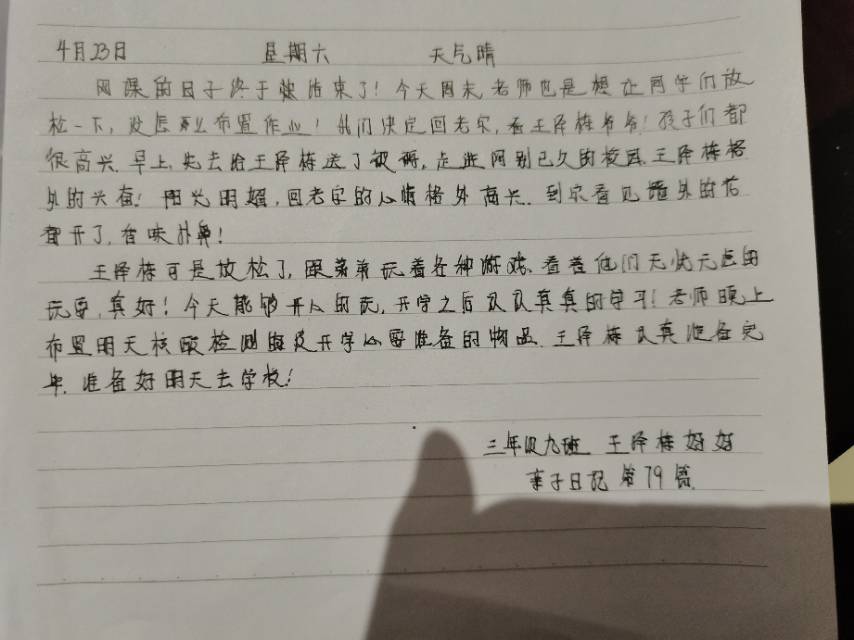 4月23日 星期六 天气晴
网课的日子终于快结束了！今天周末,老师也是想让同学们放
松一下,没怎么布置作业！我们决定回老家,看王泽栋爷爷！孩子们都
很高兴.早上,先去给王泽栋送了被褥,走进阿别已久的校园.王泽栋格
外的兴奋！阳光明媚,回老家的心情格外高兴.到家看见墙外的花
都开了,香味扑鼻！
王泽栋可是放松了,跟弟弟玩着各种游戏.看着他们无忧无虑的
玩耍,真好！今天能够开心的玩,开学之后认认真真的学习！老师晚上
布置明天核酸检测以及开学必要准备的物品.王泽栋认真准备完
毕.准备好明天去学校！
三年级九班 王泽栋妈妈
亲子日记 第79篇.